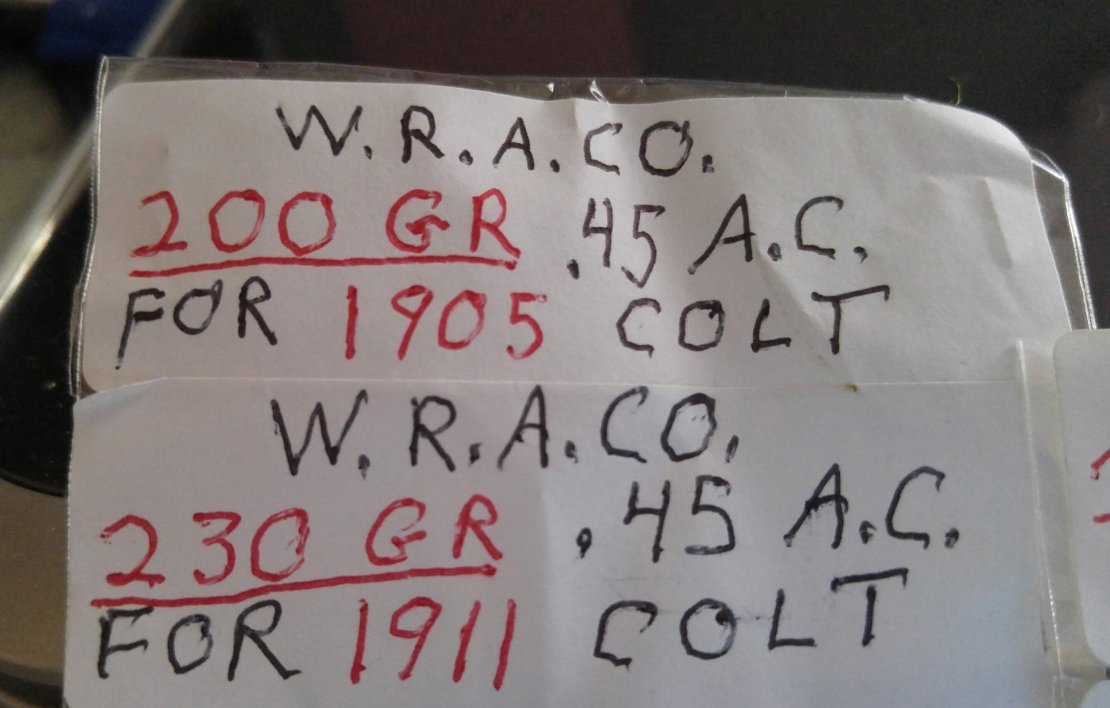 W.R.A.CO.
200 GR .45 A.C.
FOR 1905 COLT
W.R.A.CO.
230 GR .45 A.C.
FOR 1911 COLT